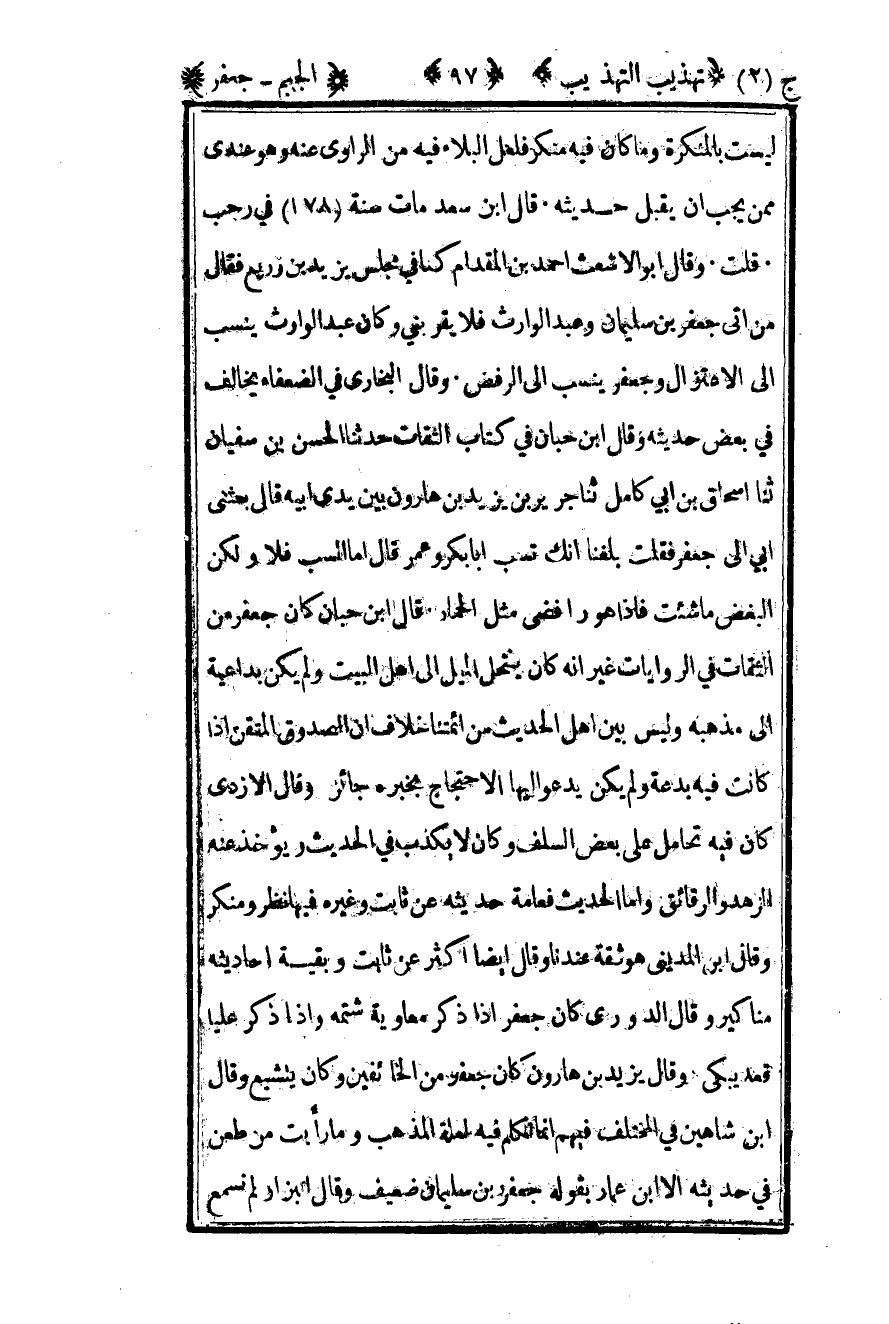 ج (٢) ﴿ تهذيب التهذيب ﴾ ﴿ ٩٧ ﴾ ﴿ الجيم - جعفر ﴾
ليست بالمنكرة وما كان فيه منكر فلعل البلاء فيه من الراوى عنه وهو عندى
ممن يجب ان يقبل حديثه · قال ابن سعد مات سنة (١٧٨) في رجب
· قلت · وقال ابو الاشعث احمد بن المقدام كنا في مجلس يزيد بن زريع فقال
من اتى جعفر بن سليمان وعبد الوارث فلا يقربني وكان عبد الوارث ينسب
الى الاعتزال وجعفر ينسب الى الرفض · وقال البخارى في الضعفاء يخالف
في بعض حديثه وقال ابن حبان في كتاب الثقات حدثنا الحسن بن سفيان
ثنا اسحاق بن ابي كامل ثنا جرير بن يزيد بن هارون بين يدى ابيه قال بعثنى
ابي الى جعفر فقلت بلغنا انك تسب ابا بكر وعمر قال اما السب فلا ولكن
البغض ما شئت فاذا هو رافضى مثل الحمار · قال ابن حبان كان جعفر من
الثقات في الروايات غير انه كان ينتحل الميل الى اهل البيت ولم يكن بداعية
الى مذهبه وليس بين اهل الحديث من ائمتنا خلاف ان الصدوق المتقن اذا
كانت فيه بدعة ولم يكن يدعو اليها الاحتجاج بخبره جائز وقال الازدى
كان فيه تحامل على بعض السلف وكان لا يكذب في الحديث ويؤخذ عنه
الزهد والرقائق واما الحديث فعامة حديثه عن ثابت وغيره فيها نظر ومنكر
وقال ابن المدينى هو ثقة عندنا وقال ايضا اكثر عن ثابت وبقية احاديثه
مناكير وقال الدورى كان جعفر اذا ذكر معاوية شتمه واذا ذكر عليا
قعد يبكى وقال يزيد بن هارون كان جعفر من الخائفين وكان يتشيع وقال
ابن شاهين في المختلف فيهم انما تكلم فيه لعلة المذهب وما رأيت من طعن
في حديثه الا ابن عمار بقوله جعفر بن سليمان ضعيف وقال البزار لم نسمع